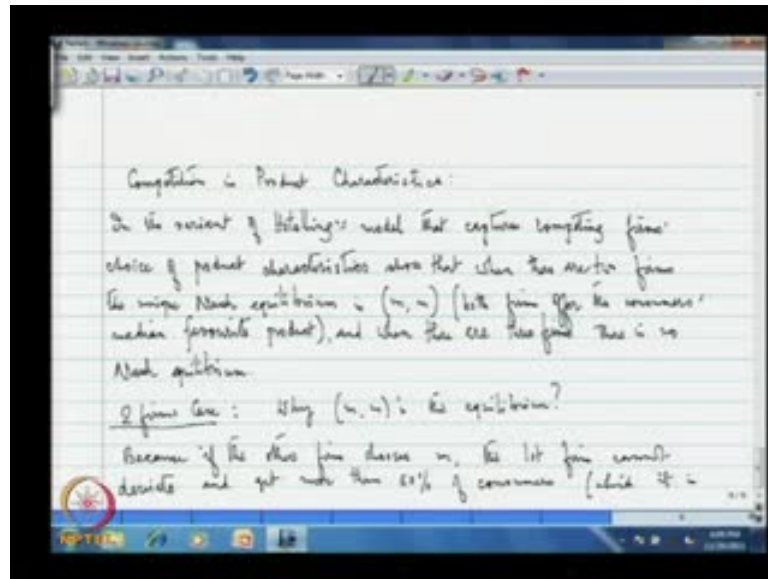 Competition in Product Characteristics:
In the variant of Hotelling's model that captures competing firms'
choice of product characteristics show that when there are two firms
the unique Nash equilibrium is (m, m) (both firms offer the consumers'
median favourite product), and when there are three firms there is no
Nash equilibrium.
2 firms Case: Why (m, m) is the equilibrium?
Because if the other firm chooses m, the 1st firm cannot
deviate and get more than 50% of consumers (which it is
NPTEL